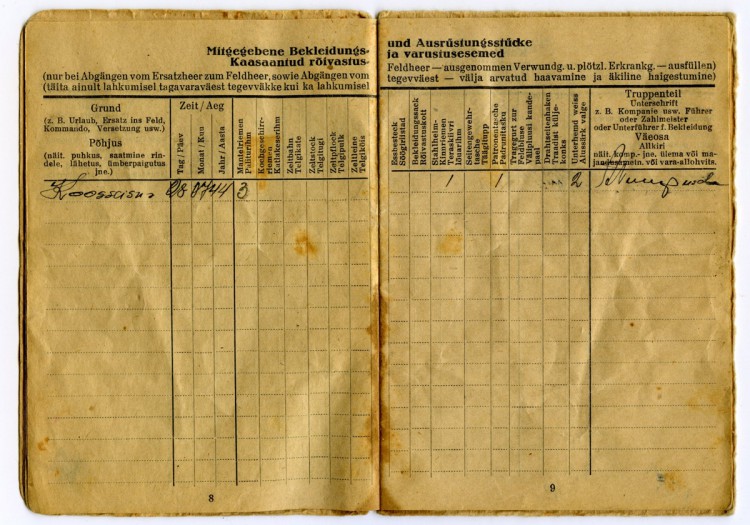 Mitgegebene Bekleidungs-
Kaasaantud rõivastus-
(nur bei Abgängen vom Ersatzheer zum Feldheer, sowie Abgängen vom
(täita ainult lahkumisel tagavaraväest tegevväkke kui ka lahkumisel
Grund
(z. B. Urlaub, Ersatz ins Feld,
Kommando, Versetzung usw.)
Põhjus
(näit. puhkus, saatmine rin-
dele, lähetus, ümberpaigutus
jne.)
Zeit / Aeg
Tag / Päev
Monat / Kuu
Jahr / Aasta
Mantelriemen
Paliturihm
Kochgeschirr-
riemen
Katlakeserihm
Zeltbahn
Telgikate
Zeltstock
Telgitugi
Zeltpflock
Telgipulk
Zeltleine
Telgiköis
28 8 44 3
8
und Ausrüstungsstücke
ja varustusesemed
Feldheer — ausgenommen Verwundg. u. plötzl. Erkrankg. — ausfüllen)
tegevväest — välja arvatud haavamine ja äkiline haigestumine)
Essbesteck
Söögiriistad
Bekleidungssack
Rõivastuskott
Stahlhelm-
Kinnriemen
Teraskiivri
lõuarihm
Seitengewehr-
tasche
Täägitupp
Patronentasche
Padrunitasku
Tragegurt zur
Feldbluse
Välipluusi kande-
pael
Drahtseitenhaken
Traadist külje-
konks
Unterhemd weiss
Alussärk valge
Truppenteil
Unterschrift
z. B. Kompanie usw. Führer
oder Zahlmeister
oder Unterführer f. Bekleidung
Väeosa
Allkiri
näit. komp.- jne. ülema või ma-
jandusametn. või vara-allohvits.
1 1 2
9